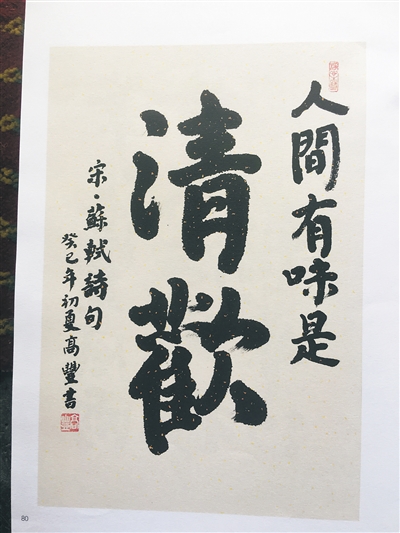 人間有味是
清歡
宋·蘇軾詩句
癸巳年初夏高豐書
80